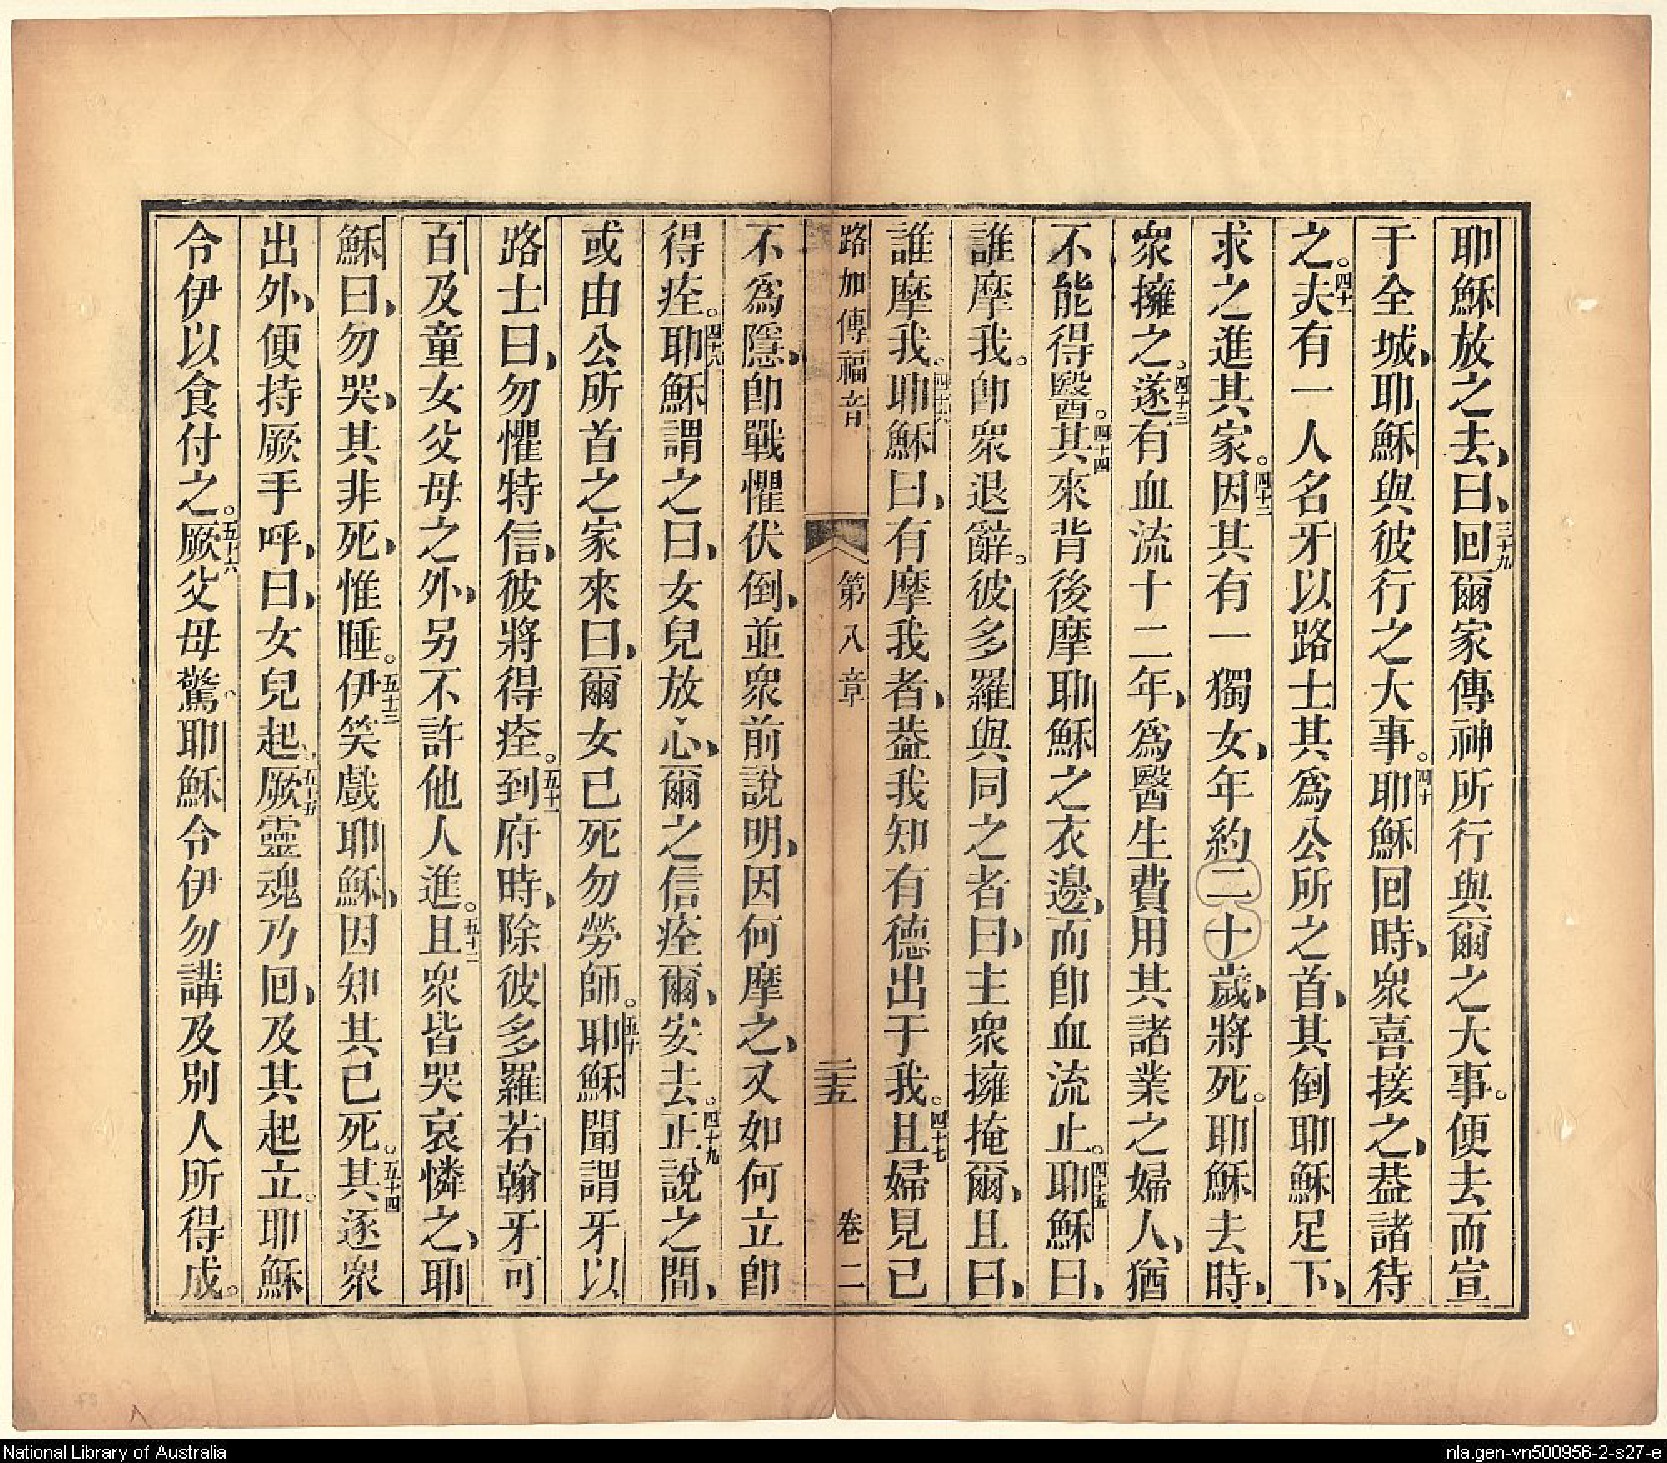 耶穌放之去、曰、三十九回爾家傳神所行與爾之大事。便去而宣
于全城、耶穌與彼行之大事。四十耶穌回時、衆喜接之、葢諸待
之。四十一夫有一人名牙以路士其爲公所之首、其倒耶穌足下、
求之進其家。四十二因其有一獨女、年約二十歲、將死。耶穌去時、
衆擁之。四十三遂有血流十二年、爲醫生費用其諸業之婦人、猶
不能得毉。四十四其來背後摩耶穌之衣邊、而卽血流止。四十五耶穌曰、
誰摩我。卽衆退辭。彼多羅與同之者曰、主衆擁掩爾、且曰、
誰摩我。四十六耶穌曰、有摩我者、葢我知有德出于我。四十七且婦見已
路加傳福音 第八章 二十五 卷二
不爲隱、卽戰懼伏倒、並衆前說明、因何摩之、又如何立卽
得痊。四十八耶穌謂之曰、女兒放心、爾之信痊爾、安去。四十九正說之間、
或由公所首之家來曰、爾女已死勿勞師。五十耶穌聞謂牙以
路士曰、勿懼特信、彼將得痊。五十一到府時、除彼多羅若翰牙可
百及童女父母之外、另不許他人進。五十二且衆皆哭哀憐之、耶
穌曰、勿哭、其非死、惟睡。五十三伊笑戲耶穌、因知其已死。五十四其逐衆
出外、便持厥手呼、曰、女兒起。五十五厥靈魂乃回、及其起立。耶穌
令伊以食付之。五十六厥父母驚。耶穌令伊勿講及別人所得成。
National Library of Australia
nla.gen-vn500956-2-s27-e